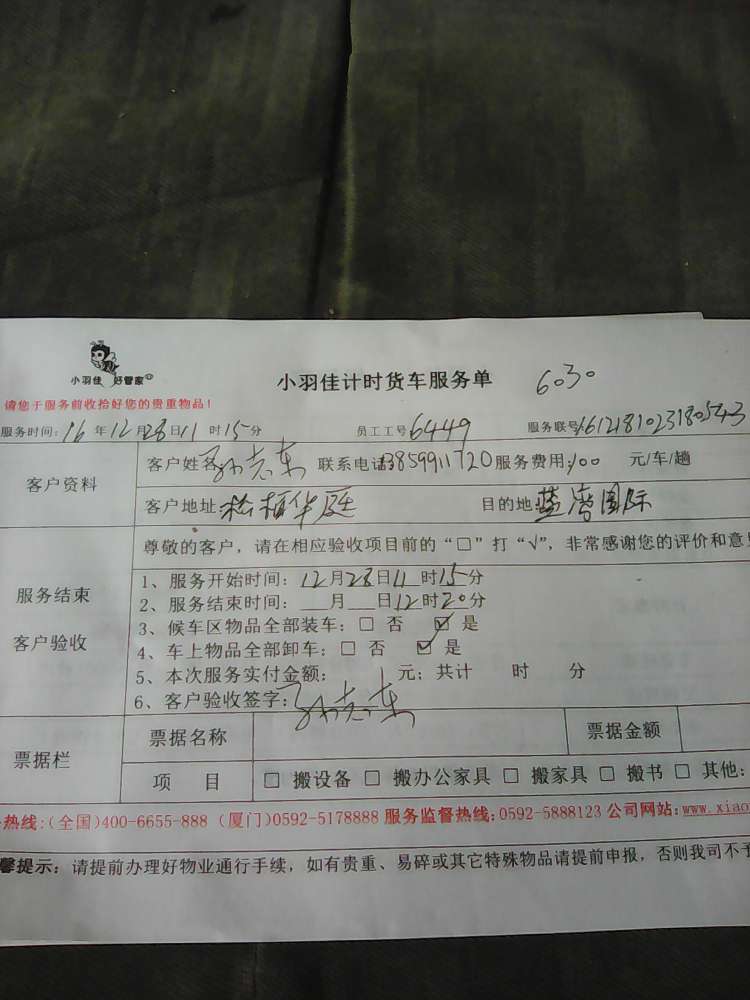 小羽佳 好管家
小羽佳计时货车服务单 6030
请您于服务前收拾好您的贵重物品！
服务时间：16年12月28日11时15分 员工工号6449 服务联号1612181023180543
客户资料
客户姓名 联系电话13859911720 服务费用：100 元/车/趟
客户地址：松柏华庭 目的地：蓝湾国际
尊敬的客户，请在相应验收项目前的“□”打“√”，非常感谢您的评价和意
服务结束
客户验收
1、服务开始时间：12月28日11时15分
2、服务结束时间：__月__日12时20分
3、候车区物品全部装车：□ 否 ☑ 是
4、车上物品全部卸车：□ 否 ☑ 是
5、本次服务实付金额： 元；共计 时 分
6、客户验收签字：
票据栏
票据名称 票据金额
项 目 □ 搬设备 □ 搬办公家具 □ 搬家具 □ 搬书 □ 其他：
热线：(全国)400-6655-888 (厦门)0592-5178888 服务监督热线：0592-5888123 公司网站：www.xiao
馨提示：请提前办理好物业通行手续，如有贵重、易碎或其它特殊物品请提前申报，否则我司不予